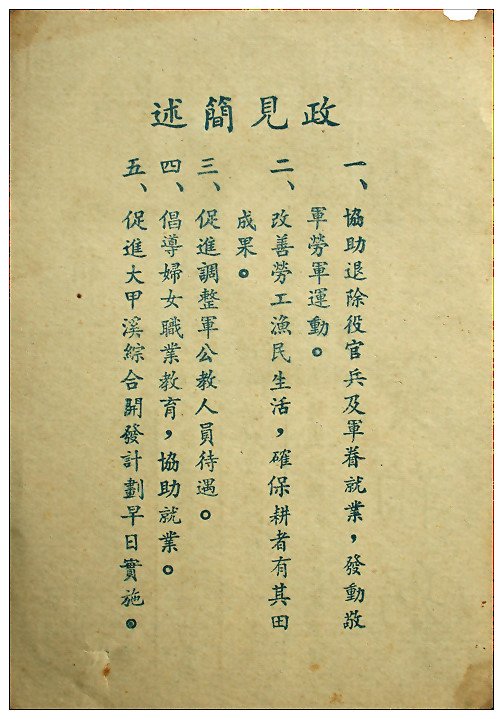 政見簡述
一、協助退除役官兵及軍眷就業，發動敬
軍勞軍運動。
二、改善勞工漁民生活，確保耕者有其田
成果。
三、促進調整軍公教人員待遇。
四、倡導婦女職業教育，協助就業。
五、促進大甲溪綜合開發計劃早日實施。